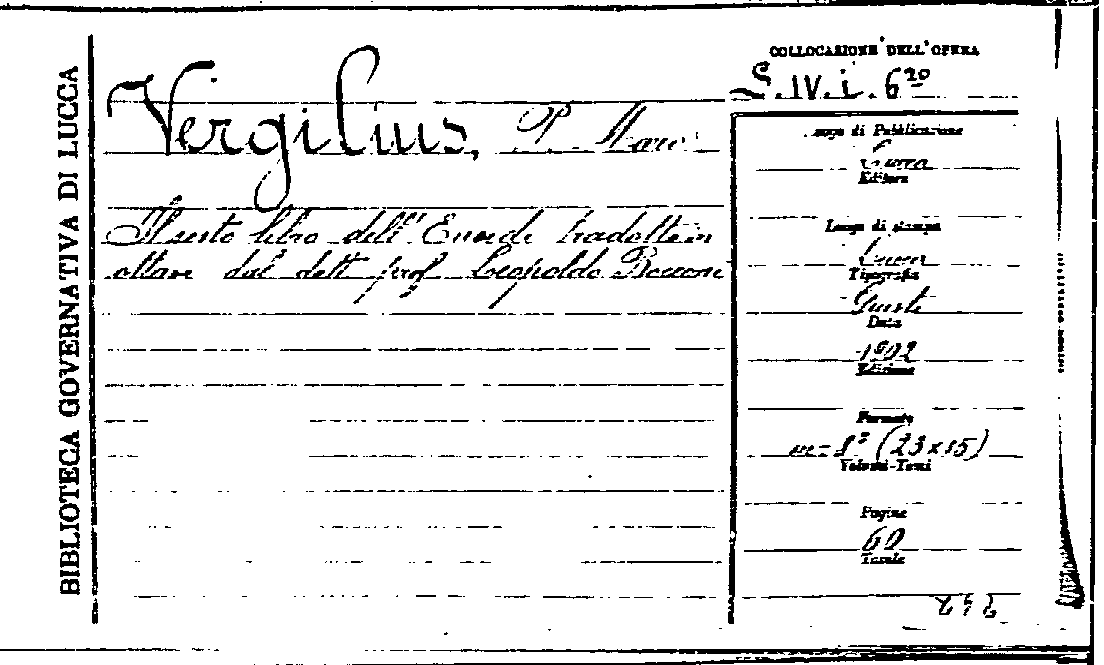 BIBLIOTECA GOVERNATIVA DI LUCCA
COLLOCAZIONE DELL'OPERA
S. IV. i. 6²⁰
Vergilius, P. Maro
Il sesto libro dell'Eneide tradotto in
ottave dal dott prof Leopoldo
Luogo di Pubblicazione
Lucca
Editore
Luogo di stampa
Lucca
Tipografia
Giusti
Data
1902
Edizione
Formato
m=8° (23x15)
Volumi-Tomi
Pagine
60
Tavole